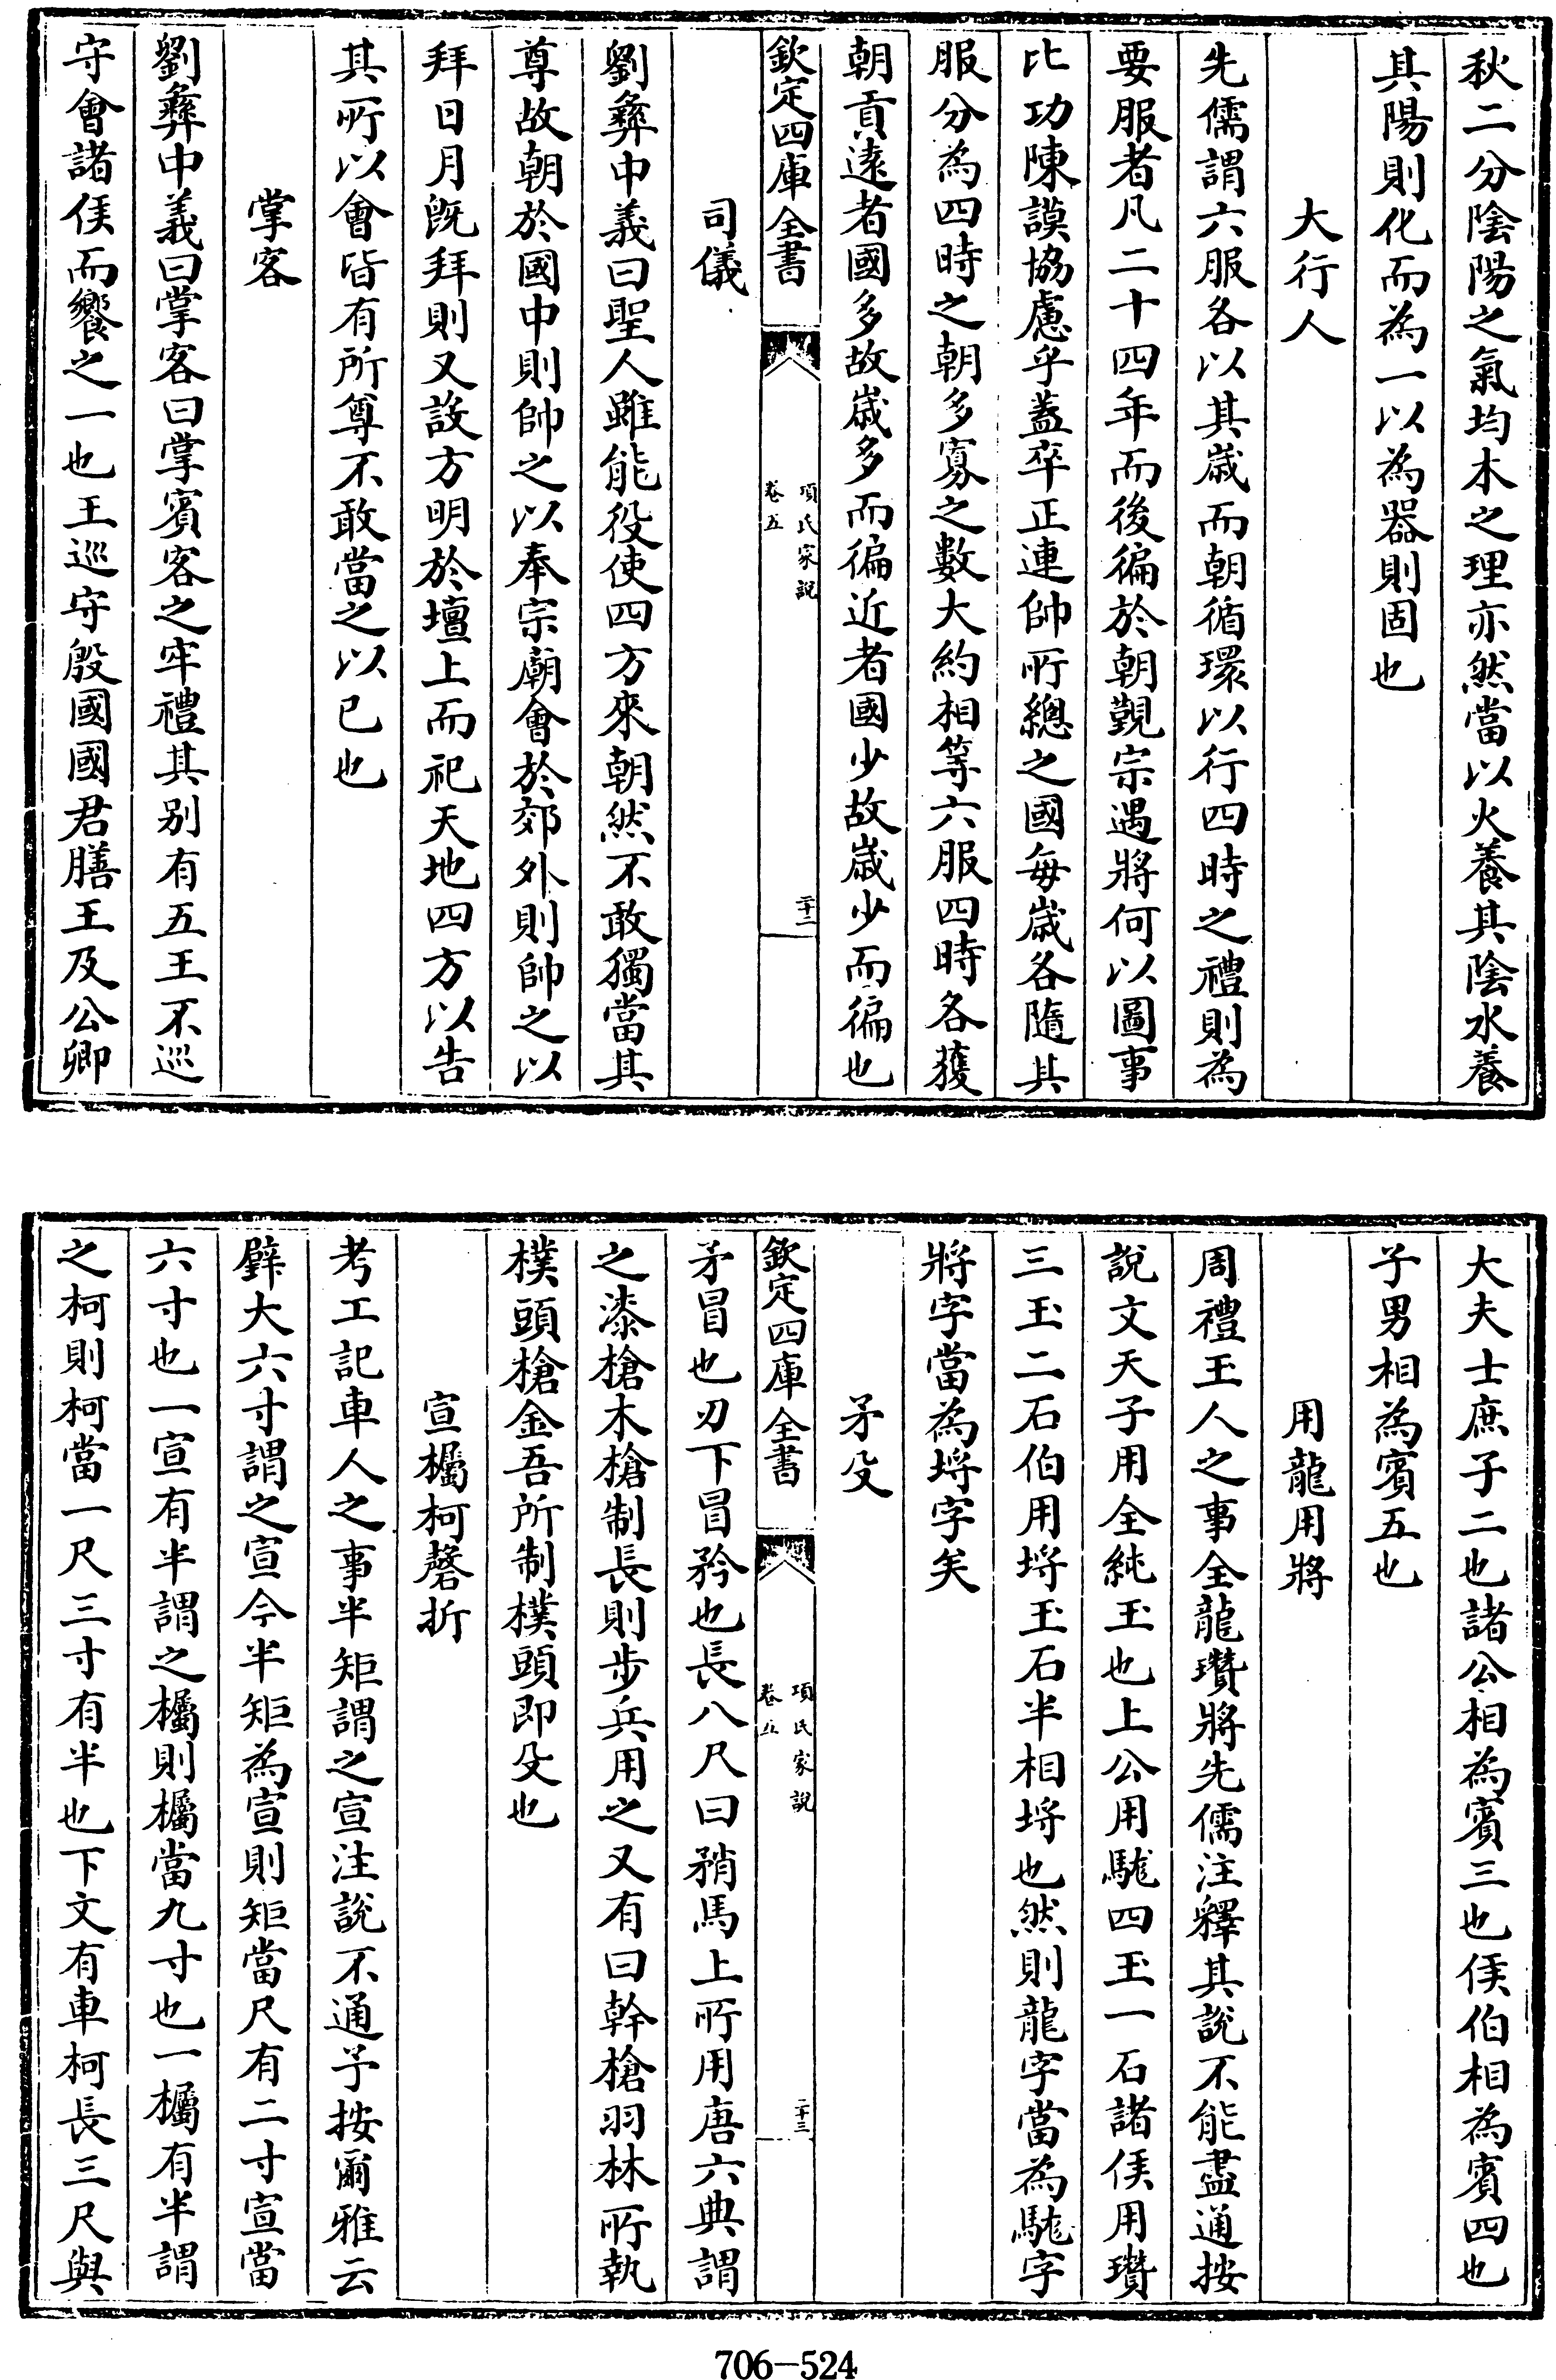 秋二分陰陽之氣均木之理亦然當以火養其陰水養
其陽則化而為一以為器則固也
大行人
先儒謂六服各以其歲而朝循環以行四時之禮則為
要服者凡二十四年而後徧於朝覲宗遇將何以圖事
比功陳謨協慮乎蓋卒正連帥所總之國每歲各隨其
服分為四時之朝多寡之數大約相等六服四時各獲
朝貢遠者國多故歲多而徧近者國少故歲少而徧也
欽定四庫全書
項氏家說
卷五
二十二
司儀
劉彝中義曰聖人雖能役使四方來朝然不敢獨當其
尊故朝於國中則帥之以奉宗廟會於郊外則帥之以
拜日月既拜則又設方明於壇上而祀天地四方以告
其所以會皆有所尊不敢當之以已也
掌客
劉彝中義曰掌客曰掌賓客之牢禮其别有五王不巡
守會諸侯而饗之一也王巡守殷國國君膳王及公卿
大夫士庶子二也諸公相為賓三也侯伯相為賓四也
子男相為賓五也
用龍用將
周禮玉人之事全龍瓚將先儒注釋其說不能盡通按
說文天子用全純玉也上公用駹四玉一石諸侯用瓚
三玉二石伯用埒玉石半相埒也然則龍字當為駹字
將字當為埒字矣
矛殳
欽定四庫全書
項氏家說
卷五
二十三
矛冒也刃下冒矜也長八尺曰矟馬上所用唐六典謂
之漆槍木槍制長則步兵用之又有曰幹槍羽林所執
樸頭槍金吾所制樸頭即殳也
宣欘柯磬折
考工記車人之事半矩謂之宣注說不通予按爾雅云
璧大六寸謂之宣今半矩為宣則矩當尺有二寸宣當
六寸也一宣有半謂之欘則欘當九寸也一欘有半謂
之柯則柯當一尺三寸有半也下文有車柯長三尺與
706-524